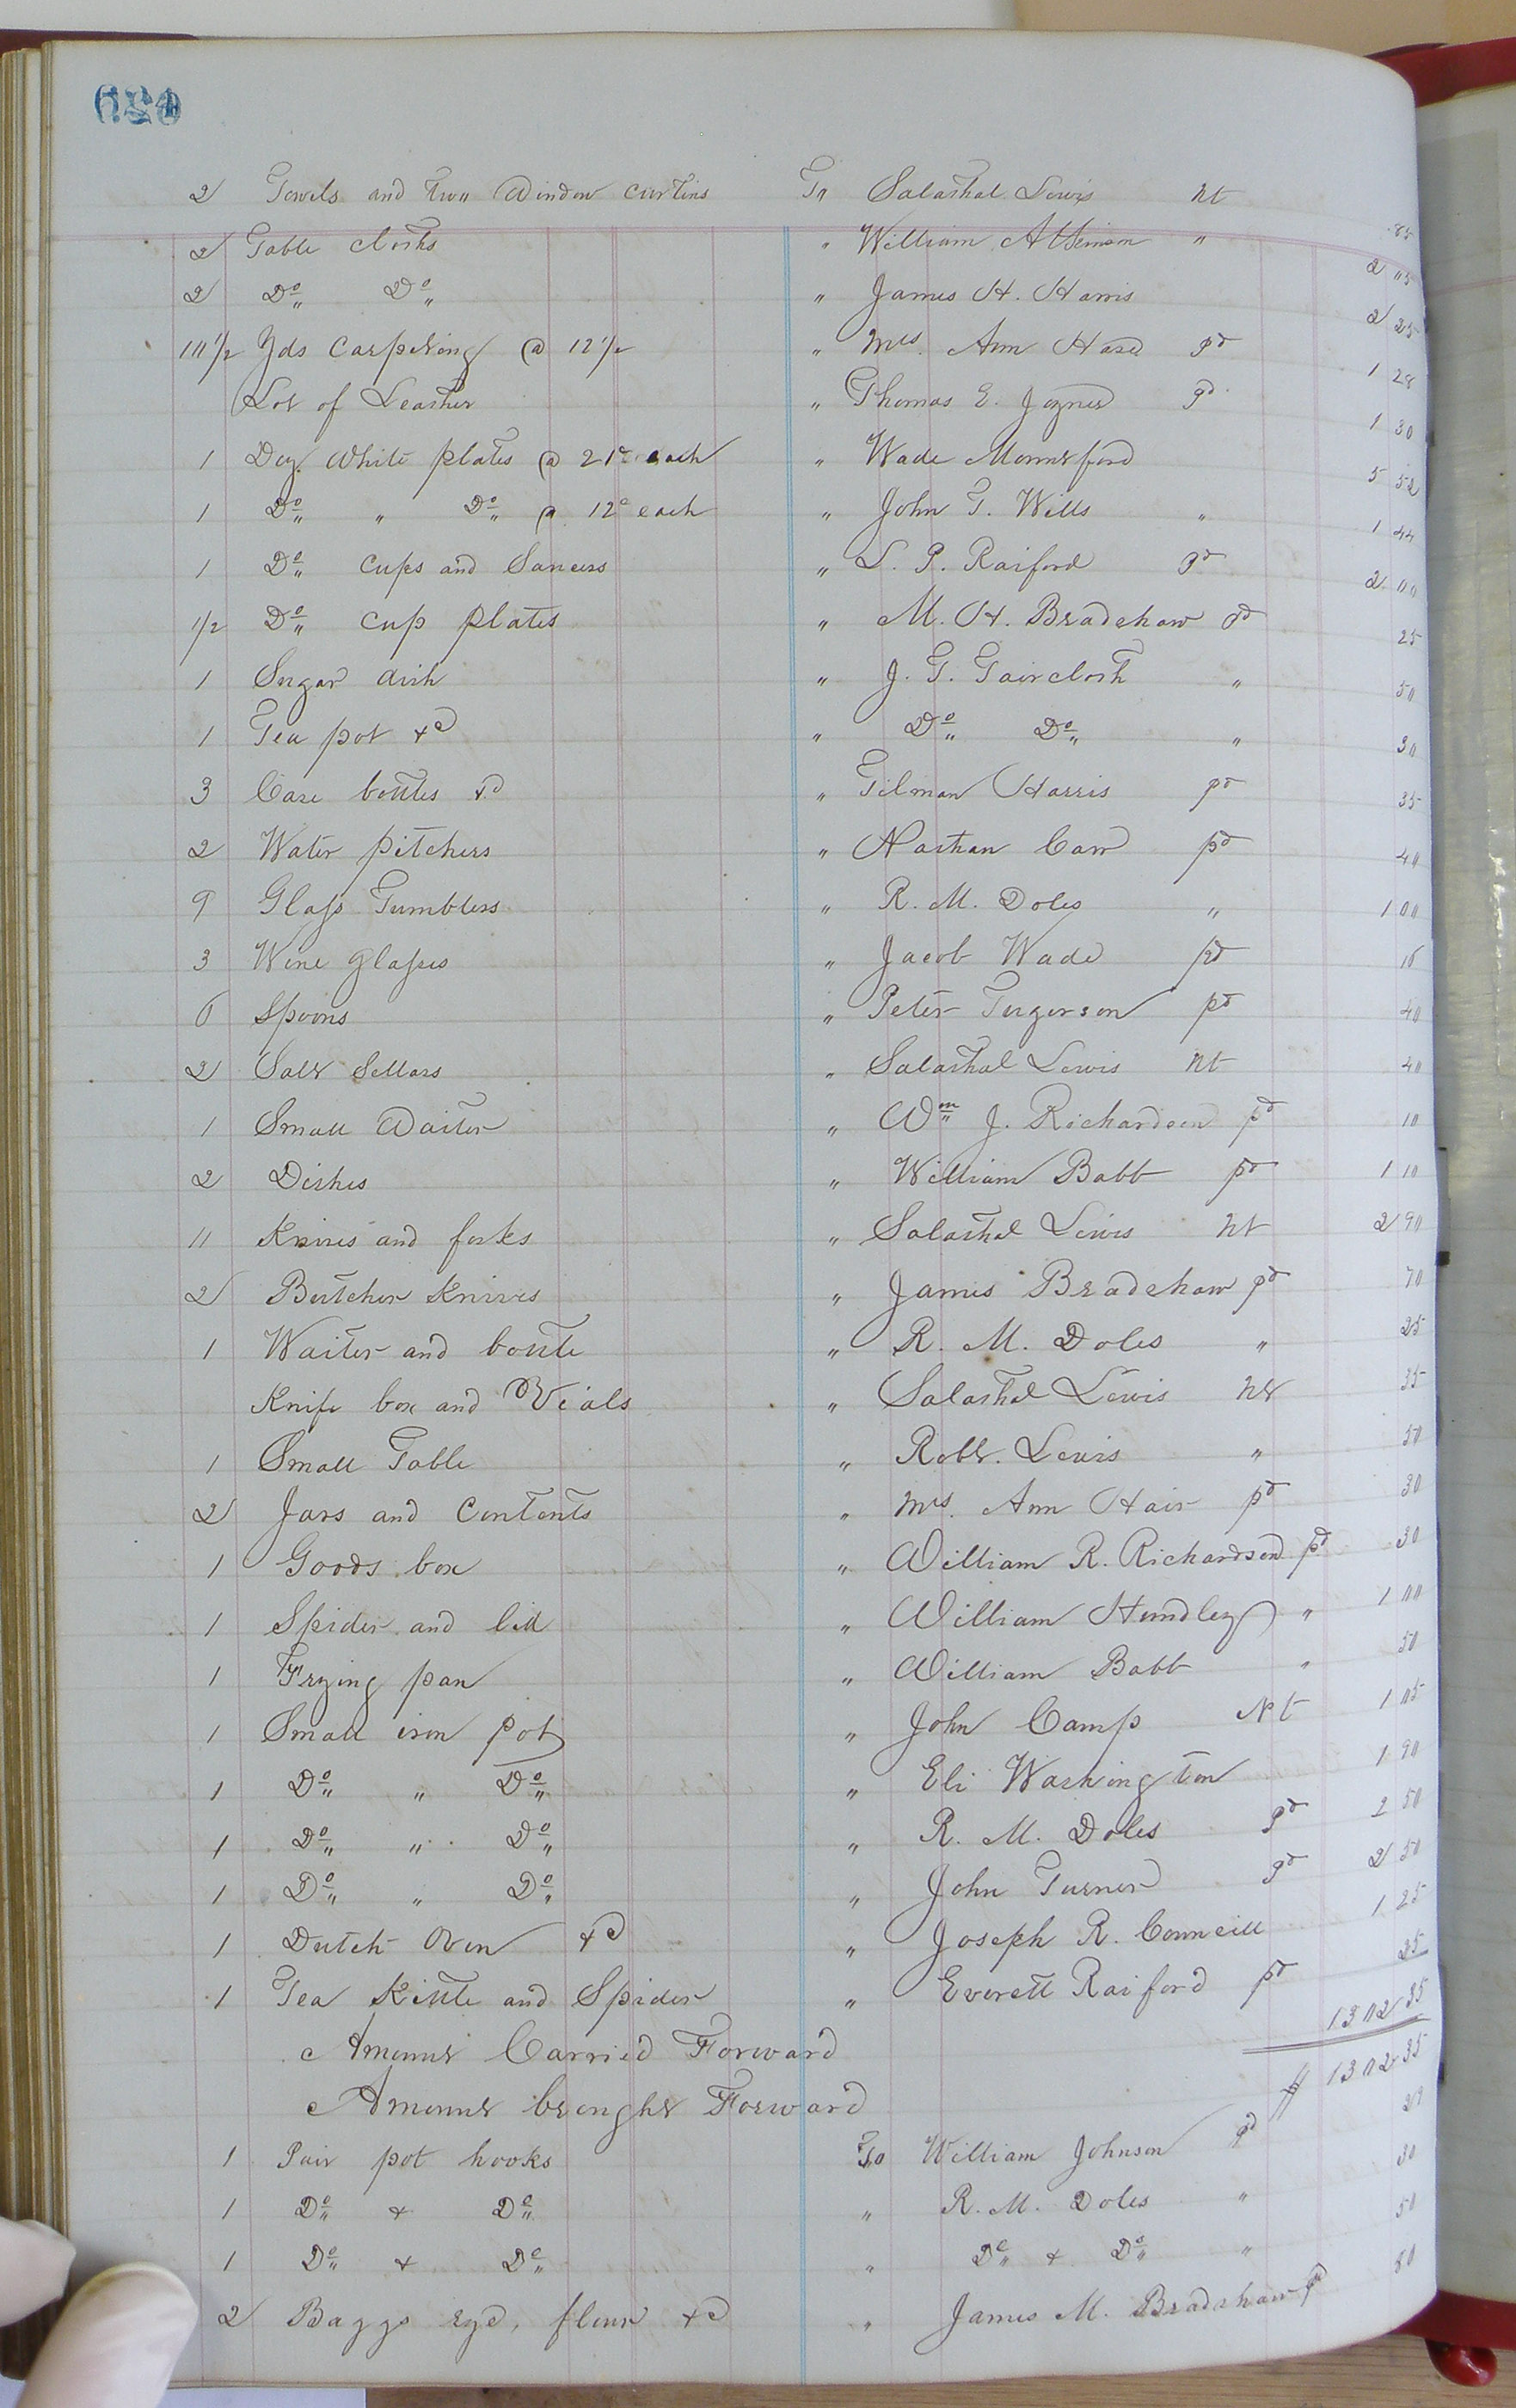 2 Towels and two Window curtins To Salathal Lewis nt 85
2 Table cloths " William Atkinson " 2 05
2 Do Do " James H. Harris 2 25
10 1/2 Yds Carpeting @ 12 1/2 " Mrs. Ann Hare pd 1 28
Lot of Leather " Thomas E. Joyner pd 1 30
1 Doz. White plates @ 21c each " Wade Mountford 5 52
1 Do " Do @ 12c each " John T. Wills " 1 44
1 Do Cups and Saucers " L. P. Raiford pd 2 00
1/2 Do Cup plates " M. H. Bradshaw pd 25
1 Sugar dish " J. T. Faircloth " 50
1 Tea pot &c " Do Do " 30
3 Case bottles &c " Tilman Harris pd 35
2 Water pitchers " Nathan Carr pd 40
9 Glass Tumblers " R. M. Doles " 1 00
3 Wine glasses " Jacob Wade pd 16
6 Spoons " Peter Furgerson pd 40
2 Salt Sellars " Salathal Lewis nt 40
1 Small Waiter " Wm J. Richardson pd 10
2 Dishes " William Babb pd 1 10
11 Knives and forks " Salathal Lewis nt 2 90
2 Butcher Knives " James Bradshaw pd 70
1 Waiter and bottle " R. M. Doles " 25
Knife box and Vials " Salathal Lewis nt 35
1 Small Table " Robt. Lewis " 50
2 Jars and Contents " Mrs. Ann Hair pd 30
1 Goods box " William R. Richardson pd 30
1 Spider and lid " William Hundley " 1 00
1 Frying pan " William Babb " 50
1 Small iron pot " John Camp Nt 1 05
1 Do " Do " Eli Washington 1 90
1 Do " Do " R. M. Doles pd 2 50
1 Do " Do " John Turner pd 2 50
1 Dutch Oven &c " Joseph R. Conneill 1 25
1 Tea Kittle and Spider " Everett Raiford pd 25
Amount Carried Forward 1302 35
Amount brought Forward $ 1302 35
1 Pair pot hooks To William Johnson pd
1 Do & Do " R. M. Doles " 30
1 Do & Do " Do & Do " 50
2 Baggs rye, flour &c " James M. Bradshaw pd 50